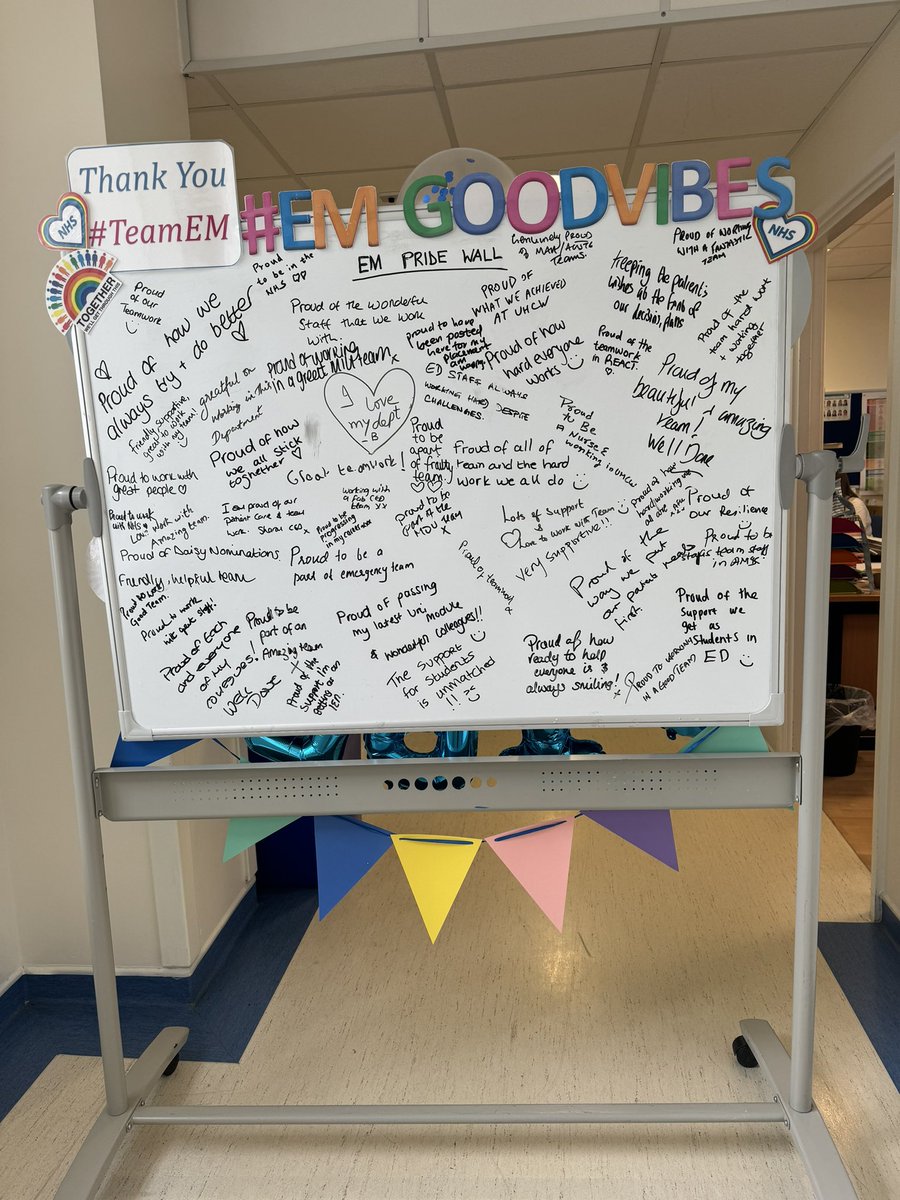 Thank You
#TeamEM
NHS
#EM GOODVIBES
NHS
TOGETHER
EM PRIDE WALL
Proud
to be in the
NHS ♡♡
Genuinely Proud
of
teams.
PROUD OF WORKING
WITH A FANTASTIC
TEAM
Proud
of our
Teamwork
Proud of how we
always try + do better
♡
Proud of the wonderful
Staff that we work
with
PROUD OF
WHAT WE ACHIEVED
AT UHCW
Keeping the patient's
wishes at the
our decision, plans
Proud of the
team hard work
+ working
together
proud to have
been posted
here for my
placement
Proud of how
hard everyone
works
Proud of the
teamwork
in REACT.
♡
friendly, supportive,
great to work
with my team!
grateful for
working in this
Department
proud of working
in a great MIU team x
I Love
my dept
B
ED STAFF ALWAYS
WORKING HARD DESPITE
CHALLENGES.
Proud of my
beautiful + amazing
team!
Well Done
Proud of how
we all stick
together ♡
Great teamwork!
Proud
to be
apart
of frailty
team.
♡♡
Proud of all of
team and the hard
work we all do
Proud
to Be
A Nurse &
working in UHCW
Proud to work with
great people ♡
Proud to work
with NHS
Love work with
Amazing team.
I am proud of our
Patient Care & team
work.
Proud to be
progressing
in my career
working with
a fab CED
team xx
proud to be
part of the
MDU team
x
Lots of Support
♡ Love to work with Team
very supportive!!
Proud of
our Resilience
Proud of Daisy Nominations
Proud to be a
part of emergency team
Proud of the
way we put
our patients needs
first.
Proud to be
team staff
in AMS
Friendly, helpful team
Good Team.
Proud to work
with great staff!
Proud of Each
and everyone
of my
colleagues!
Well
Done
Proud to be
part of an
Amazing team
x
Proud of the
support I'm
getting as
Proud of passing
my latest uni module
& wonderful colleagues!!
The support
for students
is unmatched
!!
Proud of how
ready to help
everyone is &
always smiling!
PROUD TO WORKING
IN A GOOD TEAM
Proud of the
support we
get as
students in
ED